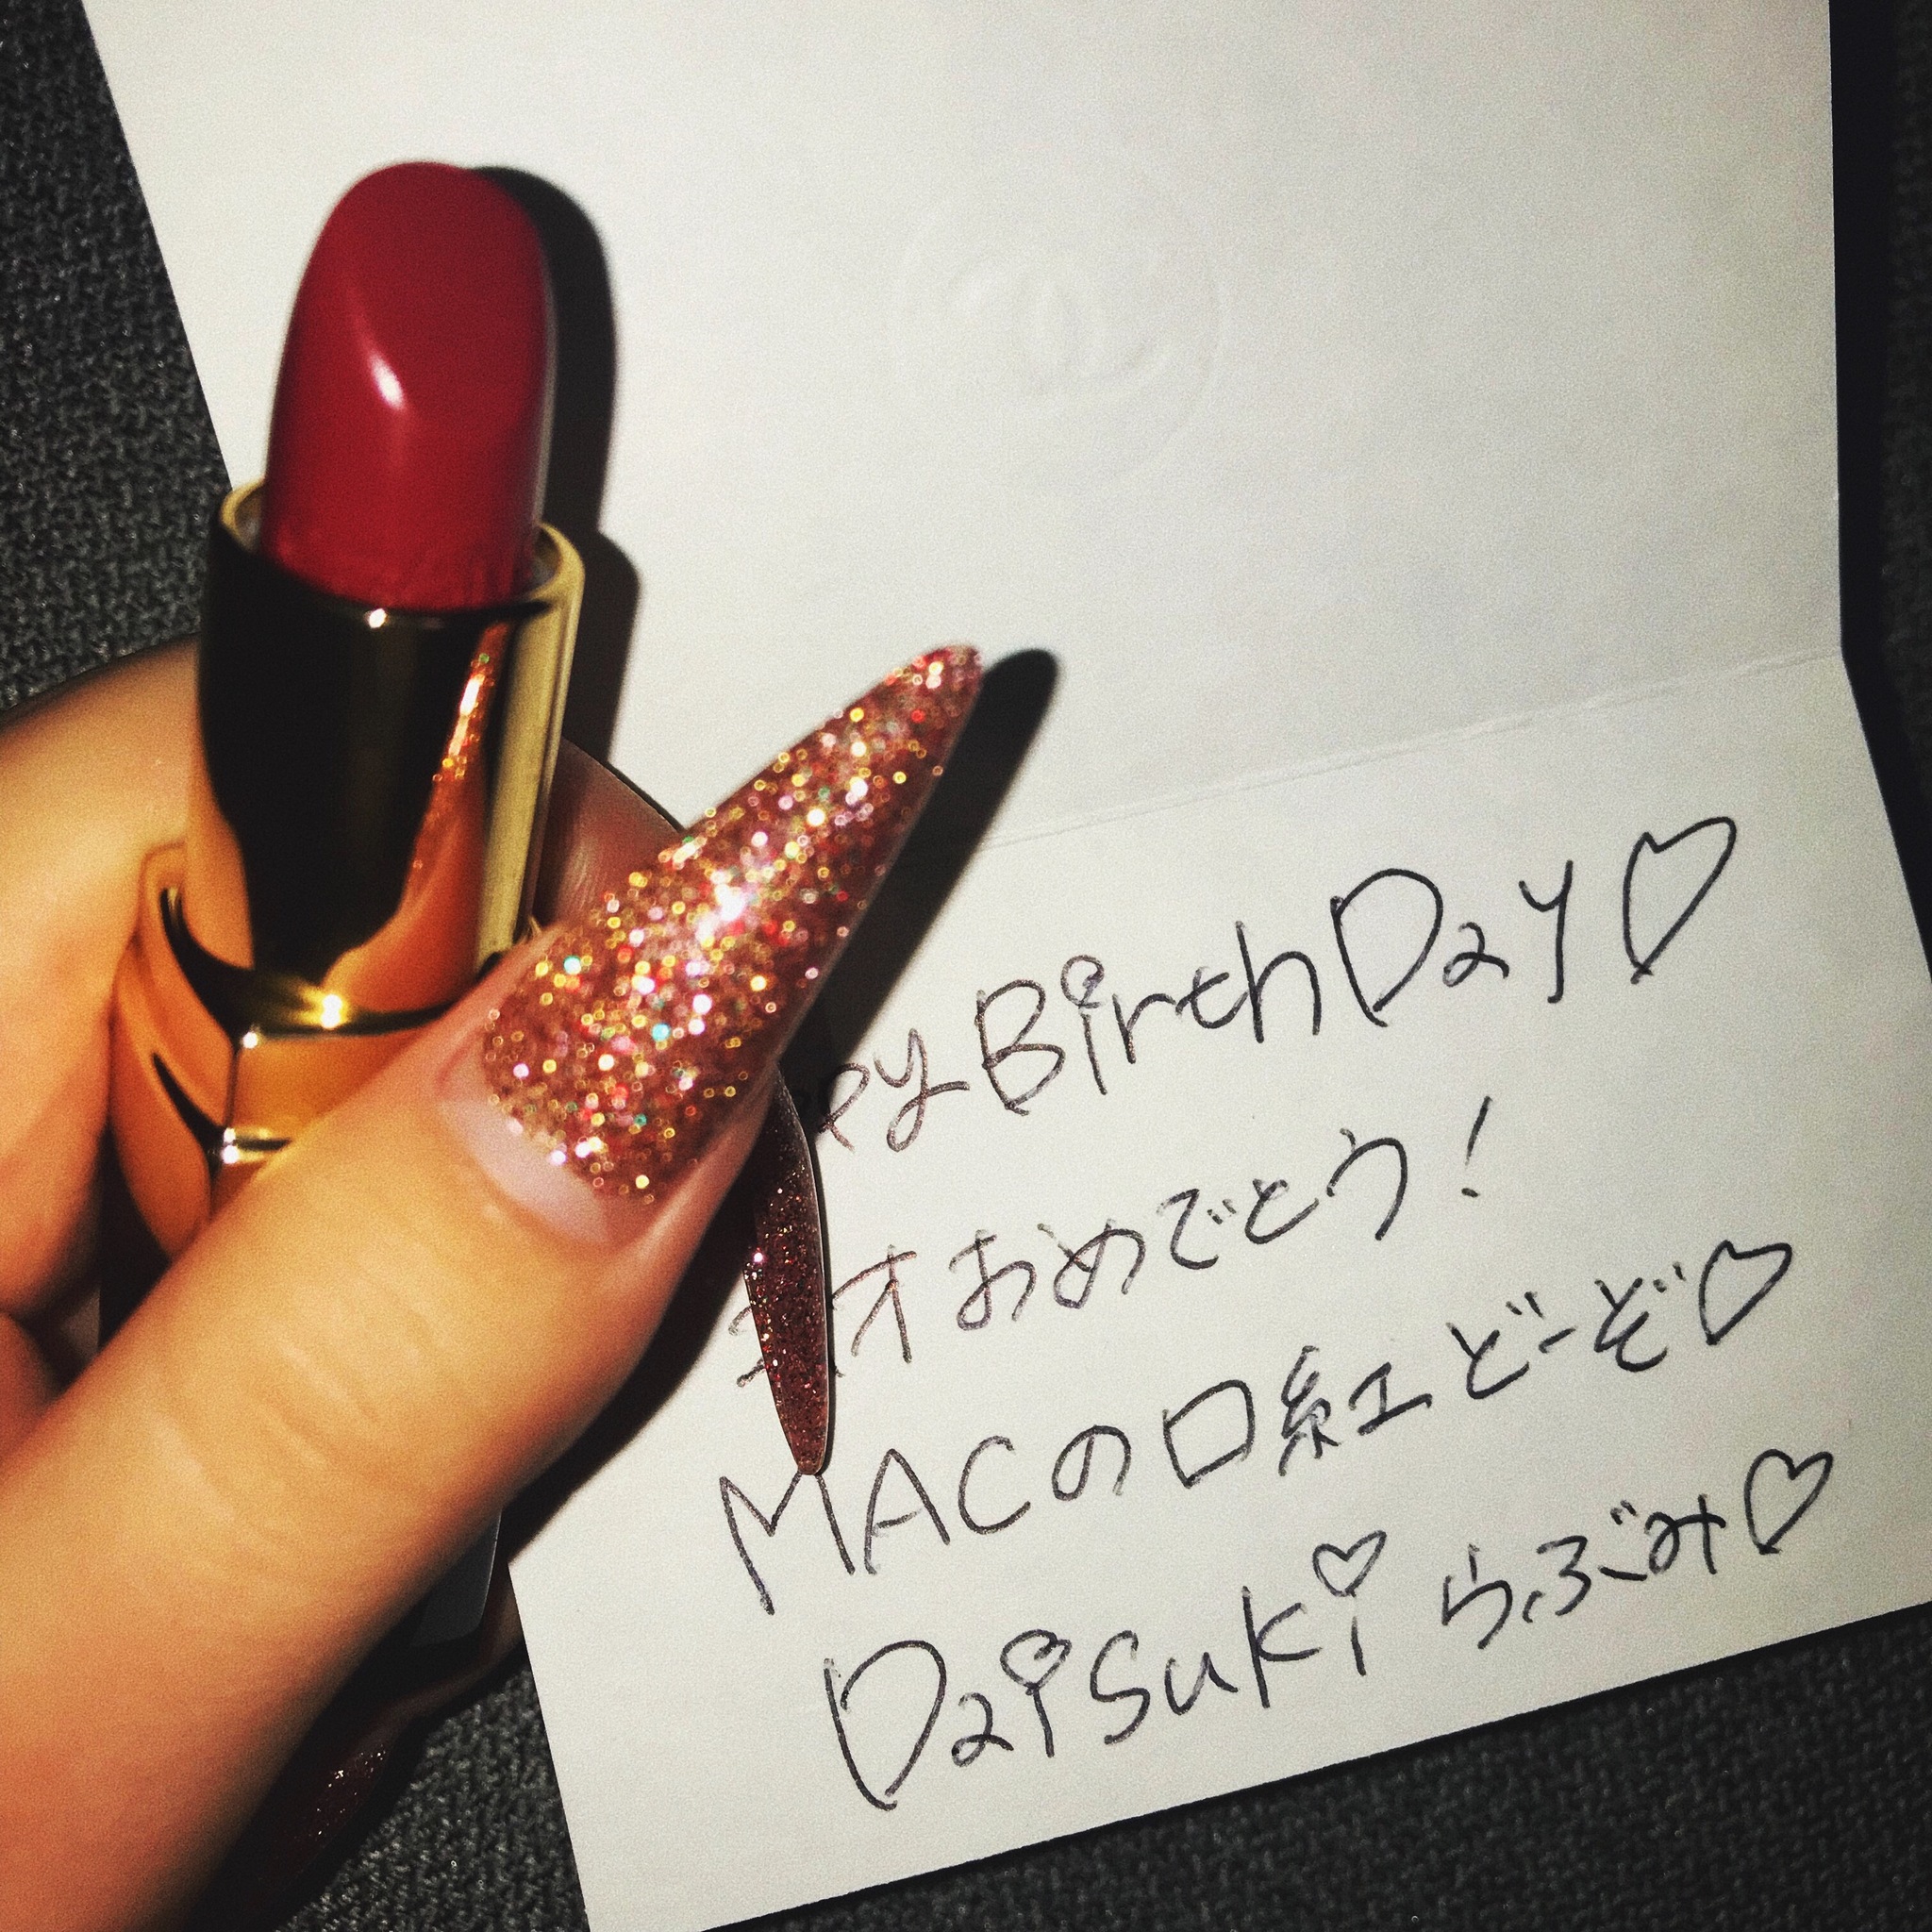 py BirthDay♡
オおめでとう!
MACの口紅どーぞ♡
Daisuki らぶみ♡